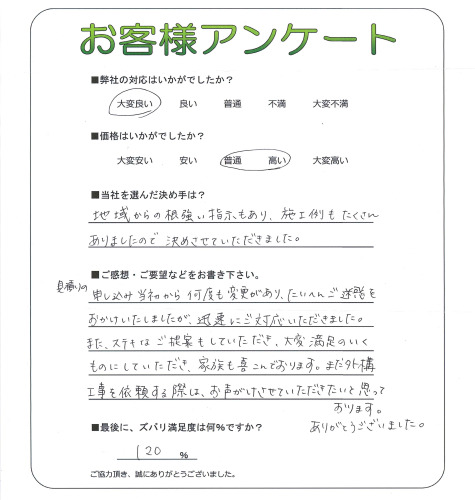 お客様アンケート
■弊社の対応はいかがでしたか？
大変良い 良い 普通 不満 大変不満
■価格はいかがでしたか？
大変安い 安い 普通 高い 大変高い
■当社を選んだ決め手は？
地域からの根強い指示もあり、施工例もたくさん
ありましたので決めさせていただきました。
■ご感想・ご要望などをお書き下さい。
見積りの
申し込み当初から何度も変更があり、たいへんご迷惑を
おかけいたしましたが、迅速にご対応いただきました。
また、ステキなご提案もしていただき、大変満足のいく
ものにしていただき、家族も喜こんでおります。また外構
工事を依頼する際は、お声がけさせていただきたいと思って
おります。
ありがとうございました。
■最後に、ズバリ満足度は何％ですか？
120 ％
ご協力頂き、誠にありがとうございました。